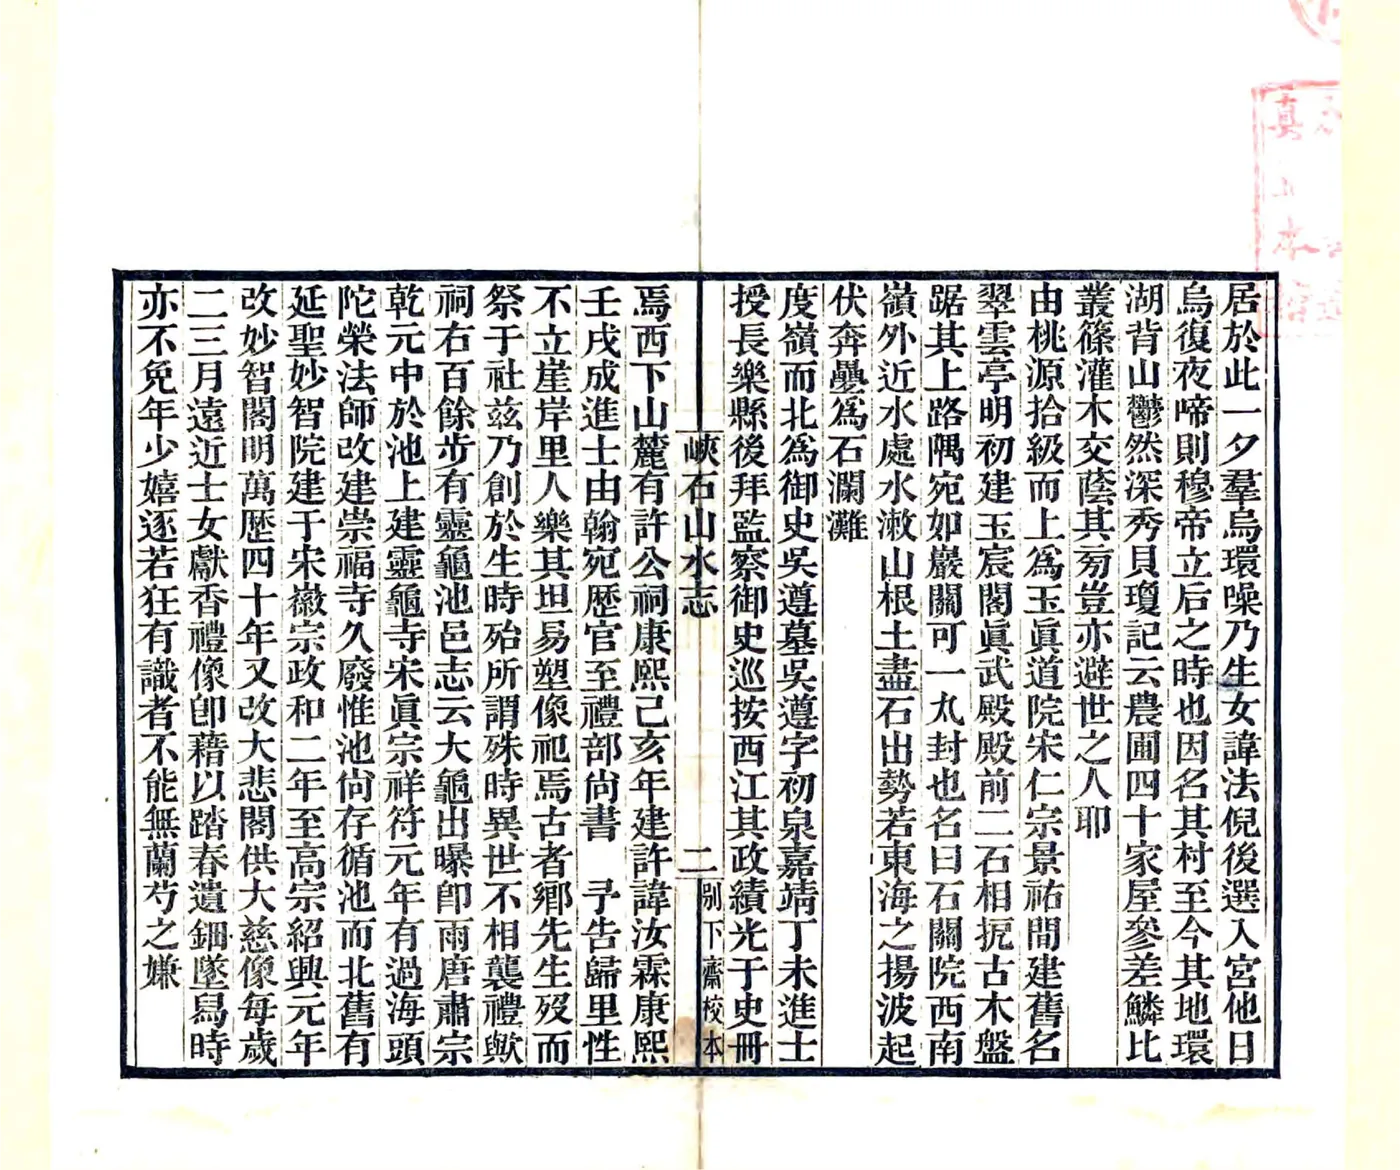 居於此一夕羣烏環噪乃生女諱法倪後選入宮他日
烏復夜啼則穆帝立后之時也因名其村至今其地環
湖背山鬱然深秀貝瓊記云農圃四十家屋參差鱗比
叢篠灌木交蔭其旁豈亦避世之人耶
由桃源拾級而上爲玉眞道院宋仁宗景祐間建舊名
翠雲亭明初建玉宸閣眞武殿殿前二石相扼古木盤
踞其上路隅宛如巖關可一丸封也名曰石關院西南
嶺外近水處水漱山根土盡石出勢若東海之揚波起
伏奔疊爲石瀾灘
度嶺而北爲御史吳遵墓吳遵字初泉嘉靖丁未進士
授長樂縣後拜監察御史巡按西江其政績光于史冊
峽石山水志
二
別下齋校本
焉西下山麓有許公祠康熙己亥年建許諱汝霖康熙
壬戌成進士由翰宛歴官至禮部尙書 予告歸里性
不立崖岸里人樂其坦易塑像祀焉古者鄉先生歿而
祭于社兹乃創於生時殆所謂殊時異世不相襲禮歟
祠右百餘步有靈龜池邑志云大龜出曝卽雨唐肅宗
乾元中於池上建靈龜寺宋眞宗祥符元年有過海頭
陀榮法師改建崇福寺久廢惟池尙存循池而北舊有
延聖妙智院建于宋徽宗政和二年至高宗紹興元年
改妙智閣明萬歷四十年又改大悲閣供大慈像每歲
二三月遠近士女獻香禮像卽藉以踏春遺鈿墜舄時
亦不免年少嬉逐若狂有識者不能無蘭芍之嫌